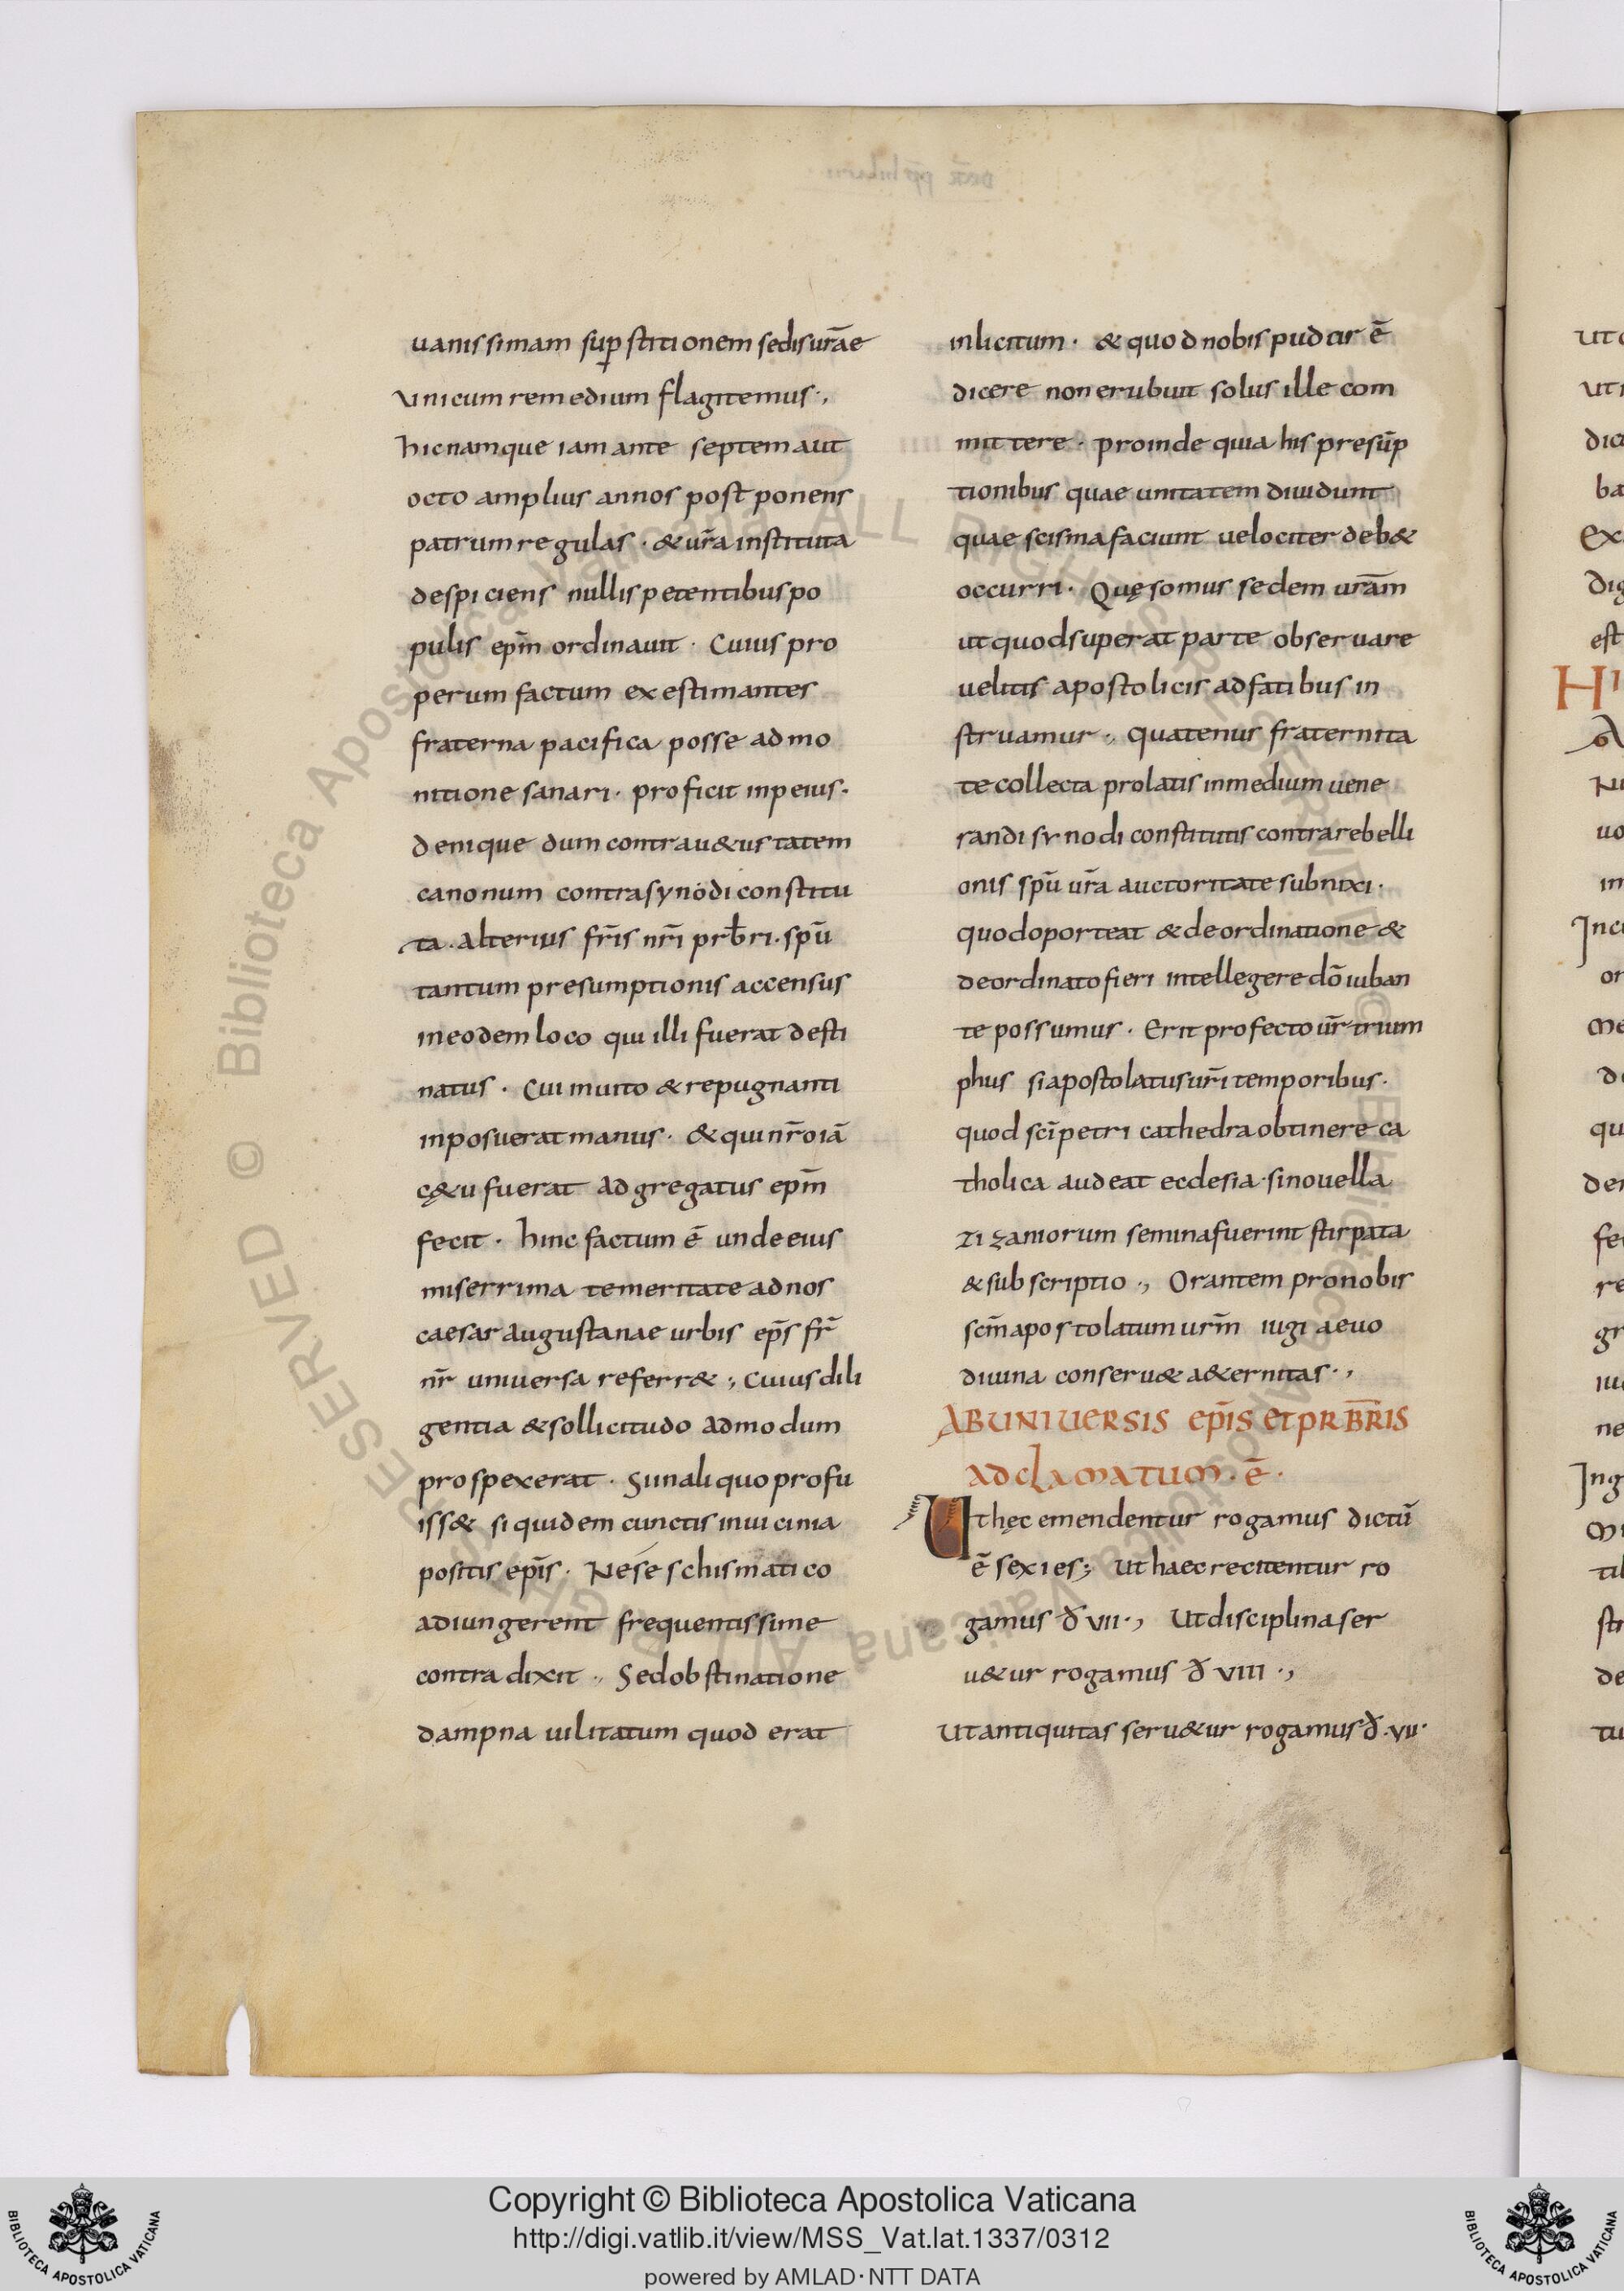 uanissimam suꝑstitionem sedis ur̄ae
unicum remedium flagitemus.,
hic namque iam ante septem aut
octo amplius annos postponens
patrum regulas · & ur̄a instituta
despiciens nullis petentibus po
pulis ep̄m ordinauit · Cuius pro
perum factum exestimantes
fraterna pacifica posse admo
nitione sanari · proficit in peius ·
denique dum contra u&ustatem
canonum contra synodi constitu
ta · alterius fr̄is nr̄i prb̄ri · spū
tantum presumptionis accensus
in eodem loco qui illi fuerat desti
natus · Cui inuito & repugnanti
inposuerat manus · & qui nr̄o iā
cę&u fuerat adgregatus ep̄m
fecit · hinc factum ē unde eius
miserrima temeritate ad nos
caesaraugustanae urbis ep̄s fr̄
nr̄ uniuersa referr& ., Cuius dili
gentia & sollicitudo admodum
prospexerat · Si in aliquo profu
iss& siquidem cunctis in uicinia
positis ep̄is · Ne se schismatico
adiungerent frequentissime
contradixit ., Sed obstinatione
dampna uilitatum quod erat
inlicitum · & quod nobis pudor ē
dicere non erubuit solus ille com
mittere · proinde quia his presūp
tionibus quae unitatem diuidunt
quae scisma faciunt uelociter deb&
occurri · Quęsomus sedem urām
ut quod superat parte obseruare
uelitis apostolicis adfatibus in
struamur ., quatenus fraternita
te collecta prolatis in medium uene
randi synodi constitutis contra rebelli
onis spū ur̄a auctoritate subnixi ·
quod oporteat & de ordinatione &
de ordinato fieri intellegere dō iuban
te possumus · Erit profecto ur̄ trium
phus si apostolatus ur̄i temporibus ·
quod sc̄i petri cathedra obtinere ca
tholica audeat ecclesia · si nouella
zizaniorum semina fuerint stirpata
& subscriptio ., Orantem pro nobis
sc̄m apostolatum ur̄m iugi aeuo
diuina conseru& a&ernitas .,
AB UNIUERSIS EP̄IS ET PRB̄R̄IS
ADCLAMATUM · Ē ·
Ut hęc emendentur rogamus dictū
ē sexies ; Ut haec recitentur ro
gamus đ VII ., Ut disciplina ser
u&ur rogamus đ VIII .,
Ut antiquitas seru&ur rogamus đ · VII ·
© Biblioteca Apostolica Vaticana ALL RIGHTS RESERVED © Biblioteca Apostolica Vaticana ALL RIGHTS RESERVED
Copyright © Biblioteca Apostolica Vaticana
http://digi.vatlib.it/view/MSS_Vat.lat.1337/0312
powered by AMLAD · NTT DATA
BIBLIOTECA APOSTOLICA VATICANA
BIBLIOTECA APOSTOLICA VATICANA